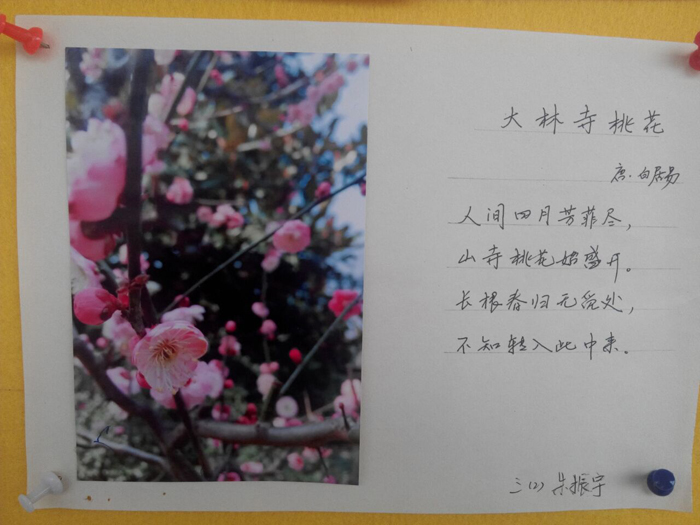 大林寺桃花
唐·白居易
人间四月芳菲尽，
山寺桃花始盛开。
长恨春归无觅处，
不知转入此中来。
三(2) 朱振宇